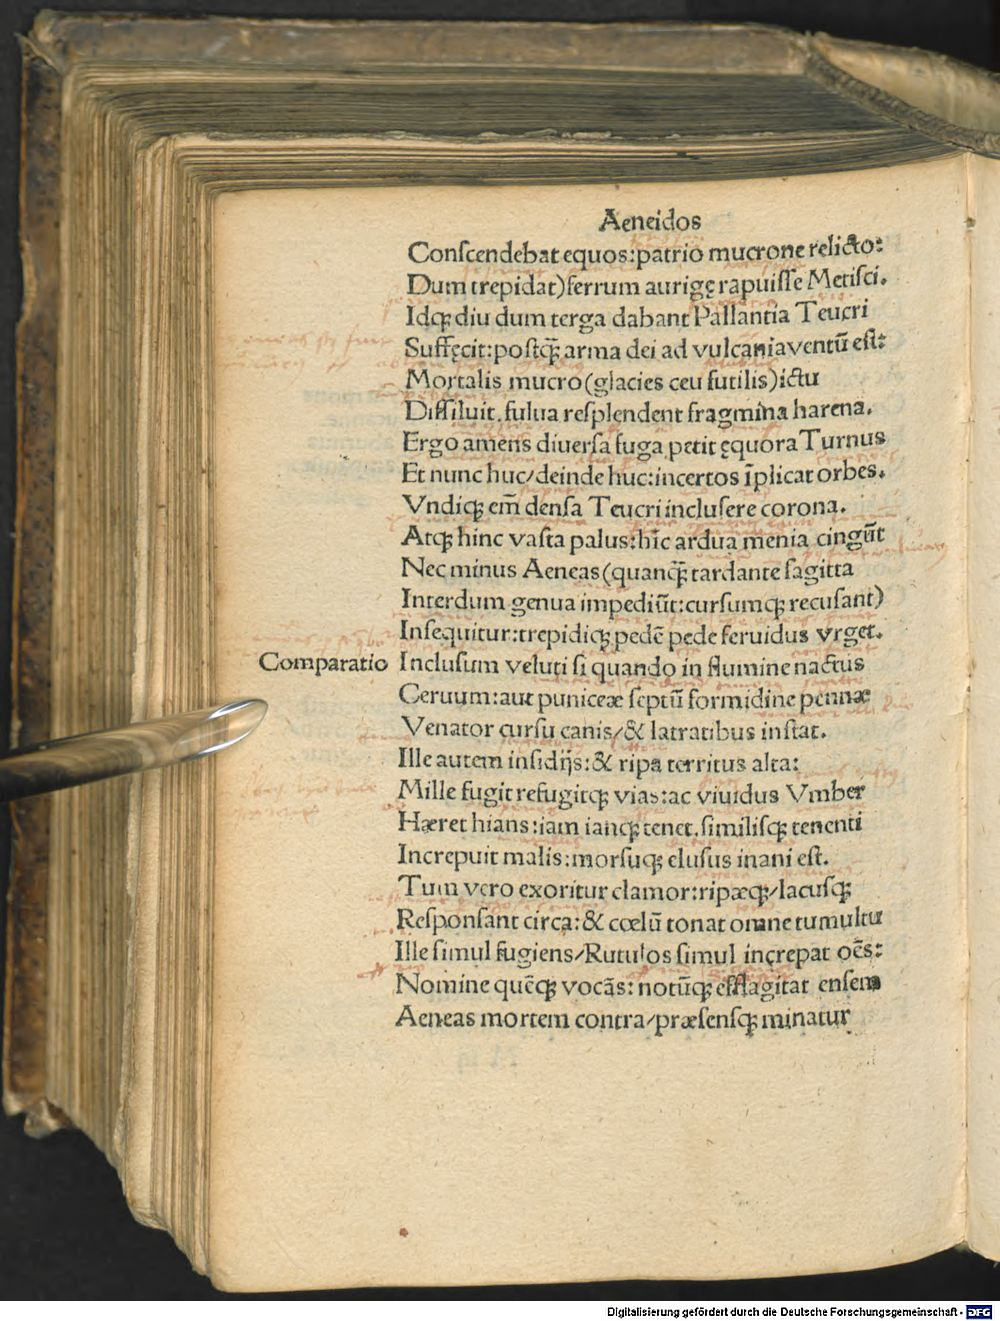 Aeneidos
Conſcendebat equos:patrio mucrone relicto:
Dum trepidat)ferrum aurigę rapuiſſe Metiſci.
Idqꝫ diu dum terga dabant Pallantia Teucri
Suffęcit:poſtq̄ꝫ arma dei ad vulcania ventū eſt:
Mortalis mucro(glacies ceu futilis)ictu
Diſſiluit. fulua reſplendent fragmina harena.
Ergo amens diuerſa fuga petit ęquora Turnus
Et nunc huc/deinde huc:incertos īplicat orbes.
Vndiqꝫ em̄ denſa Teucri incluſere corona.
Atqꝫ hinc vaſta palus:hīc ardua menia cingūt
Nec minus Aeneas(quanq̄ꝫ tardante ſagitta
Interdum genua impediūt:curſumqꝫ recuſant)
Inſequitur:trepidiqꝫ pedē pede feruidus vrget.
Comparatio Incluſum veluti ſi quando in flumine nactus
Ceruum:aut puniceæ ſeptū formidine pennæ
Venator curſu canis/& latratibus inſtat.
Ille autem inſidijs:& ripa territus alta:
Mille fugit refugitqꝫ vias:ac viuidus Vmber
Hæret hians:iam iamqꝫ tenet. ſimiliſqꝫ tenenti
Increpuit malis:morſuqꝫ eluſus inani eſt.
Tum vero exoritur clamor:ripæqꝫ/lacuſqꝫ
Reſponſant circa:& cœlū tonat omne tumultu
Ille ſimul fugiens/Rutulos ſimul increpat oēs:
Nomine quēqꝫ vocās:notūqꝫ efflagitat enſem
Aeneas mortem contra/præſenſqꝫ minatur
Digitalisierung gefördert durch die Deutsche Forschungsgemeinschaft - DFG